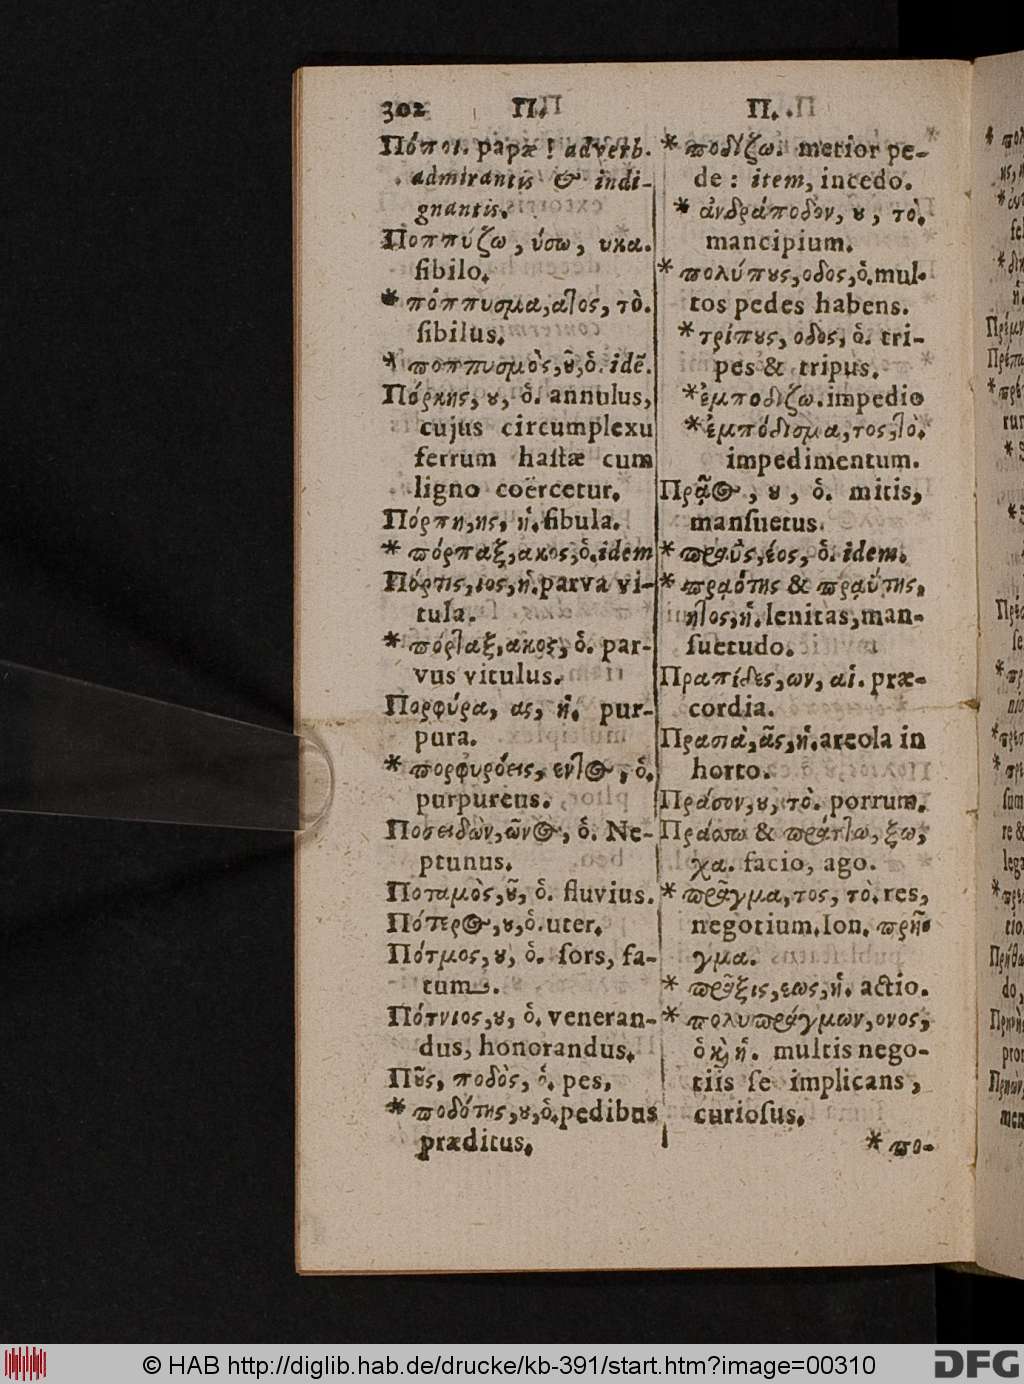 302 Π. Π.
Πόποι. papæ ! adverb.
admirantis & indi-
gnantis.
Ποππύζω, ύσω, υκα.
ſibilo.
* πόππυσμα, ατος, τὸ.
ſibilus.
* ποππυσμὸς, ȣ͂, ὁ. idẽ.
Πόρκης, ȣ, ὁ. annulus,
cujus circumplexu
ferrum haſtæ cum
ligno coërcetur.
Πόρπη, ης, ἡ. fibula.
* πόρπαξ, ακος, ὁ. idem
Πόρτις, ιος, ἡ. parva vi-
tula.
* πόρταξ, ακος, ὁ. par-
vus vitulus.
Πορφύρα, ας, ἡ. pur-
pura.
* πορφυρόεις, εντος, ὁ.
purpureus.
Ποσειδῶν, ῶνος, ὁ. Ne-
ptunus.
Ποταμὸς, ȣ͂, ὁ. fluvius.
Πότερος, ȣ, ὁ. uter.
Πότμος, ȣ, ὁ. ſors, fa-
tum.
Πότνιος, ȣ, ὁ. veneran-
dus, honorandus.
Πȣ͂ς, ποδὸς, ὁ. pes.
* ποδότης, ȣ, ὁ. pedibus
præditus.
* ποδίζω. metior pe-
de : item, incedo.
* ἀνδράποδον, ȣ, τὸ.
mancipium.
* πολύπȣς, οδος, ὁ. mul-
tos pedes habens.
* τρίπȣς, οδος, ὁ. tri-
pes & tripus.
* ἐμποδίζω. impedio
* ἐμπόδισμα, τος, τὸ.
impedimentum.
Πρᾷος, ȣ, ὁ. mitis,
manſuetus.
* πραῢς, έος, ὁ. idem.
* πρᾳότης & πραΰτης,
ητος, ἡ. lenitas, man-
ſuetudo.
Πραπίδες, ων, αἱ. præ-
cordia.
Πρασιὰ, ᾶς, ἡ. areola in
horto.
Πράσον, ȣ, τὸ. porrum.
Πράσσω & πράττω, ξω,
χα. facio, ago.
* πρᾶγμα, τος, τὸ. res,
negotium. Ion. πρῆ-
γμα.
* πρᾶξις, εως, ἡ. actio.
* πολυπράγμων, ονος,
ὁ κ̀ ἡ. multis nego-
tiis ſe implicans,
curioſus.
* πο-
© HAB http://diglib.hab.de/drucke/kb-391/start.htm?image=00310
DFG